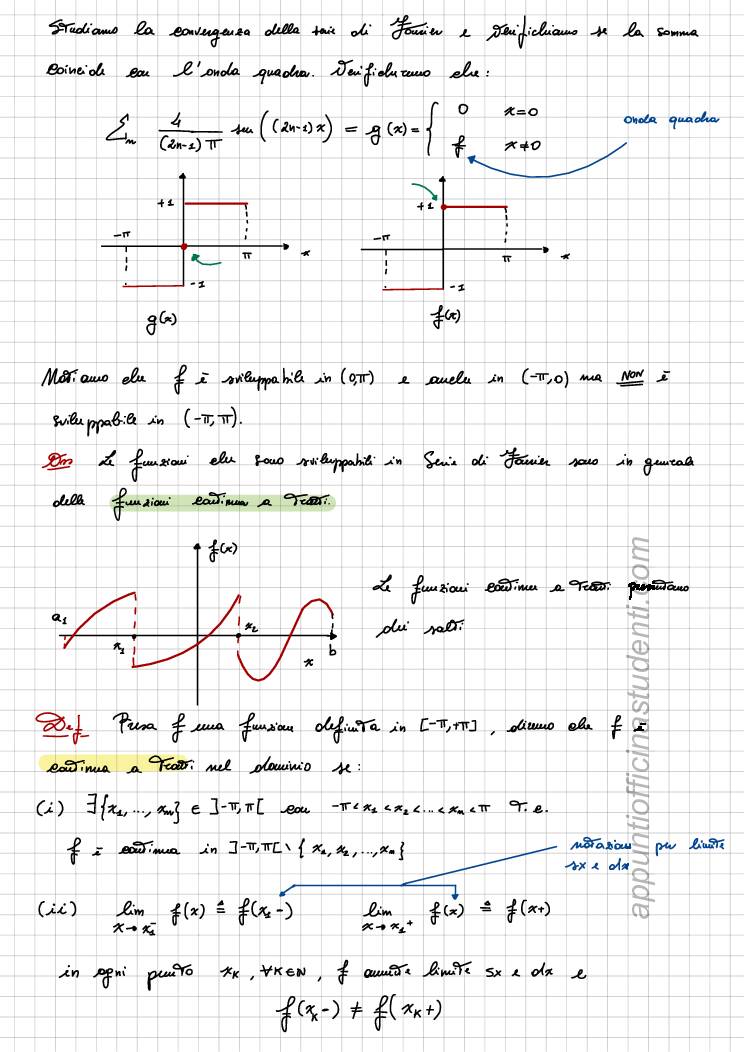 Studiamo la convergenza della serie di Fourier e verifichiamo se la somma
coincide con l'onda quadra. Verificheremo che:
∑n 4/((2n-1)π) sen((2n-1)x) = g(x) = { 0 x=0
f x≠0
onda quadra
+1 +1
-π π x -π π x
-1 -1
g(x) f(x)
Notiamo che f è sviluppabile in (0,π) e anche in (-π,0) ma NON è
sviluppabile in (-π,π).
Oss Le funzioni che sono sviluppabili in Serie di Fourier sono in generale
delle funzioni continue a tratti.
f(x)
Le funzioni continue a tratti presentano
dei salti.
a1 x1 x2 x b
Def Presa f una funzione definita in [-π,+π], diremo che f è
continua a tratti nel dominio se:
(i) ∃{x1, ..., xm} ∈ ]-π,π[ con -π<x1<x2<...<xm<π t.c.
f è continua in ]-π,π[ \ { x1, x2, ..., xm}
notazione per limite
sx e dx
(ii) lim x→x1- f(x) ≜ f(x1-) lim x→x1+ f(x) ≜ f(x+)
in ogni punto xk, ∀k∈N, f ammette limite sx e dx e
f(xk-) ≠ f(xk+)
appuntiofficinastudenti.com